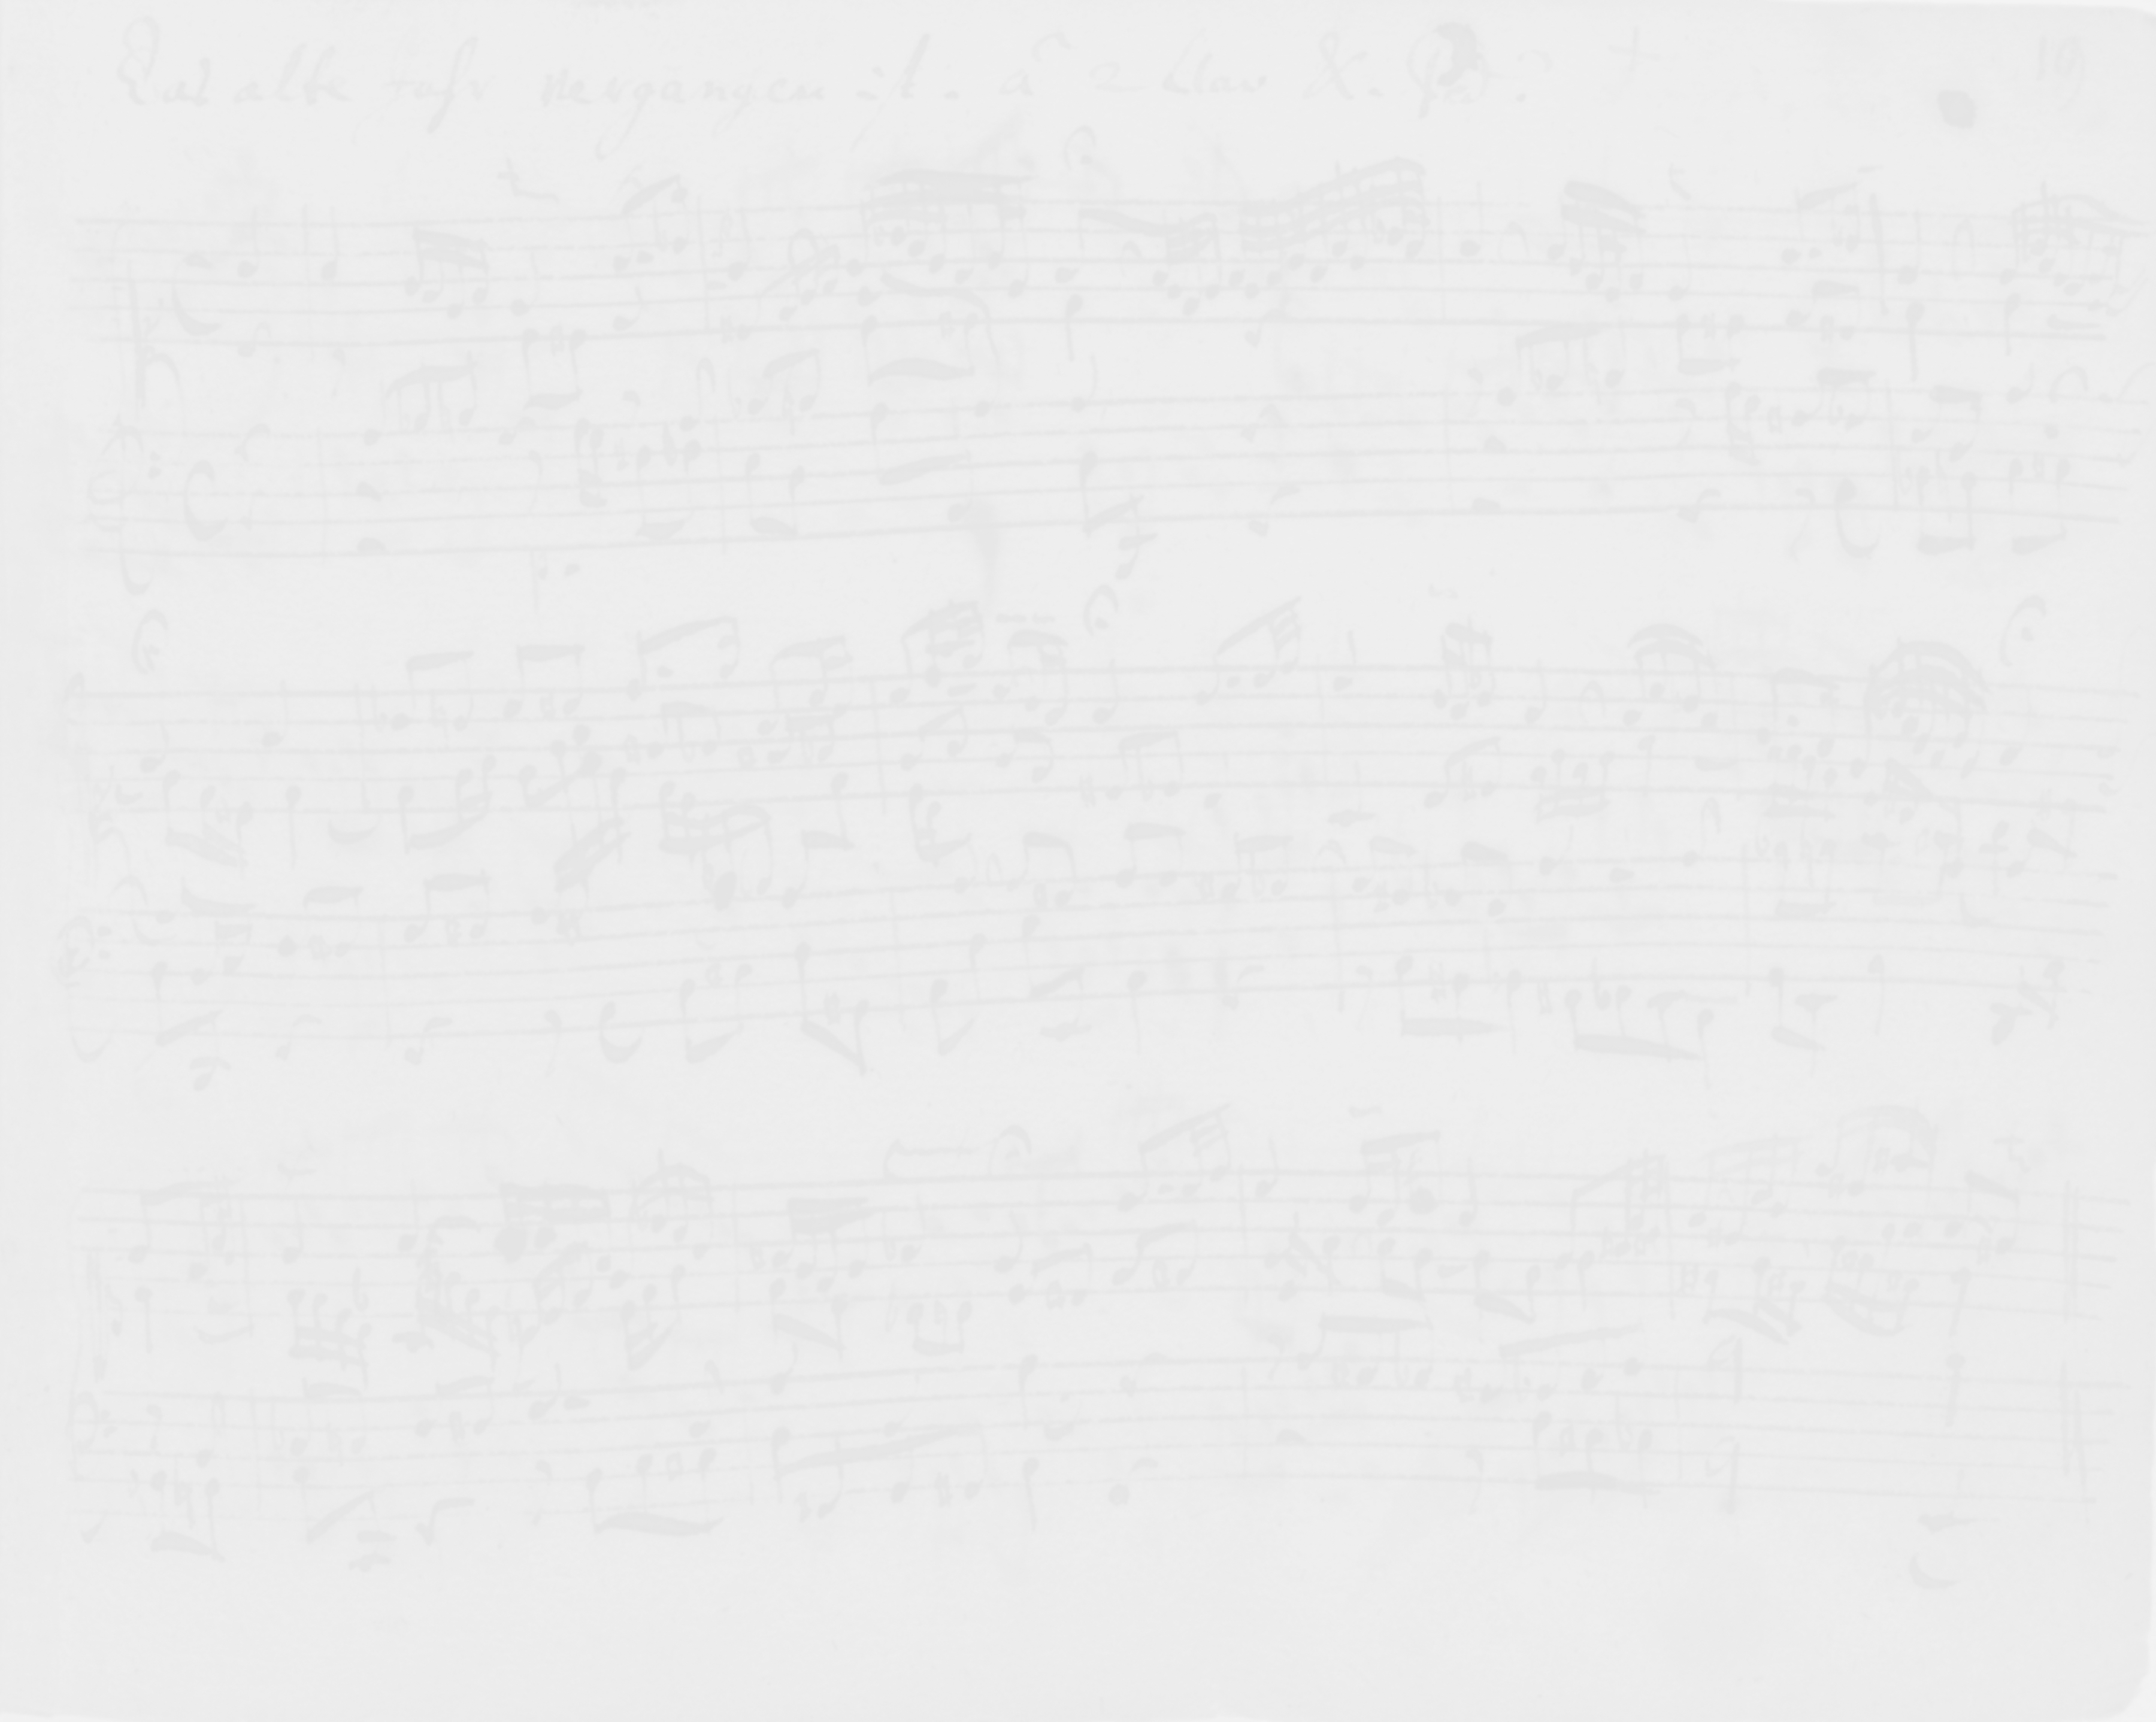 Das alte Jahr vergangen ist. a 2 Clav & Ped. 19